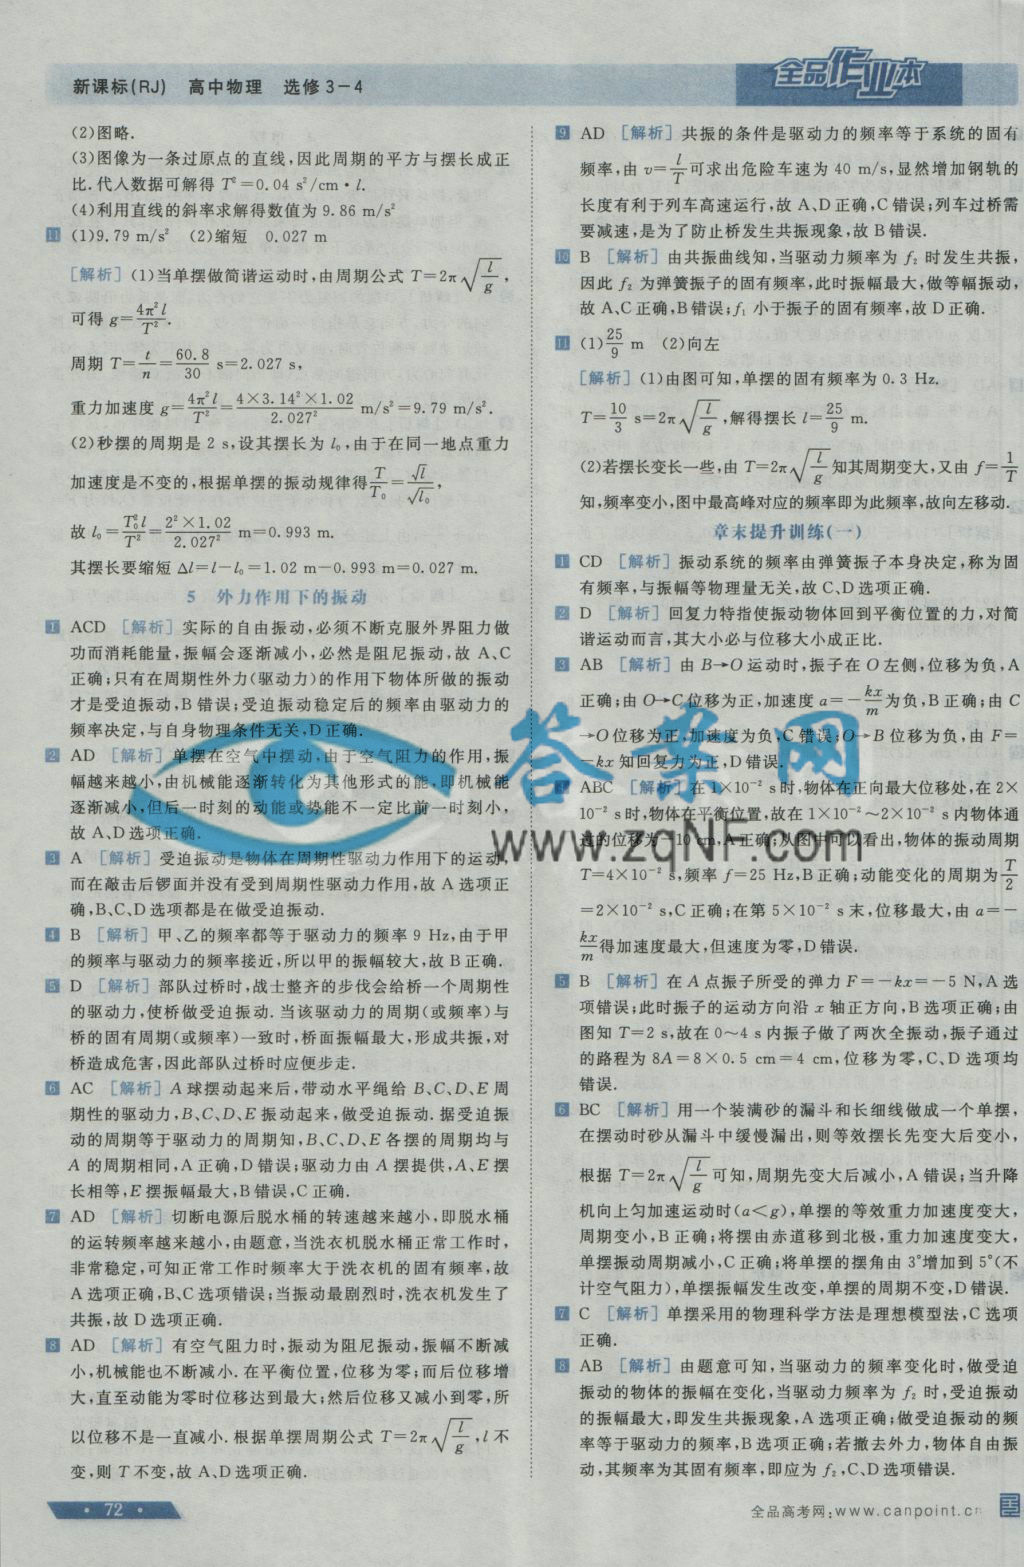 新课标(RJ) 高中物理 选修3-4
全品作业本
(2)图略.
(3)图像为一条过原点的直线,因此周期的平方与摆长成正
比.代入数据可解得 T²=0.04 s²/cm·l.
(4)利用直线的斜率求解得数值为 9.86 m/s²
11 (1)9.79 m/s² (2)缩短 0.027 m
[解析] (1)当单摆做简谐运动时,由周期公式 T=2π√(l/g),
可得 g=4π²l/T².
周期 T=t/n=60.8/30 s=2.027 s,
重力加速度 g=4π²l/T²=4×3.14²×1.02/2.027² m/s²=9.79 m/s².
(2)秒摆的周期是 2 s,设其摆长为 l₀,由于在同一地点重力
加速度是不变的,根据单摆的振动规律得T/T₀=√l/√l₀,
故 l₀=T₀²l/T²=2²×1.02/2.027² m=0.993 m.
其摆长要缩短 Δl=l-l₀=1.02 m-0.993 m=0.027 m.
5 外力作用下的振动
1 ACD [解析] 实际的自由振动,必须不断克服外界阻力做
功而消耗能量,振幅会逐渐减小,必然是阻尼振动,故 A、C
正确;只有在周期性外力(驱动力)的作用下物体所做的振动
才是受迫振动,B 错误;受迫振动稳定后的频率由驱动力的
频率决定,与自身物理条件无关,D 正确.
2 AD [解析] 单摆在空气中摆动,由于空气阻力的作用,振
幅越来越小,由机械能逐渐转化为其他形式的能,即机械能
逐渐减小,但后一时刻的动能或势能不一定比前一时刻小,
故 A、D 选项正确.
3 A [解析] 受迫振动是物体在周期性驱动力作用下的运动,
而在敲击后锣面并没有受到周期性驱动力作用,故 A 选项正
确,B、C、D 选项都是在做受迫振动.
4 B [解析] 甲、乙的频率都等于驱动力的频率 9 Hz,由于甲
的频率与驱动力的频率接近,所以甲的振幅较大,故 B 正确.
5 D [解析] 部队过桥时,战士整齐的步伐会给桥一个周期性
的驱动力,使桥做受迫振动.当该驱动力的周期(或频率)与
桥的固有周期(或频率)一致时,桥面振幅最大,形成共振,对
桥造成危害,因此部队过桥时应便步走.
6 AC [解析] A 球摆动起来后,带动水平绳给 B、C、D、E 周
期性的驱动力,B、C、D、E 振动起来,做受迫振动.据受迫振
动的周期等于驱动力的周期知,B、C、D、E 各摆的周期均与
A 的周期相同,A 正确,D 错误;驱动力由 A 摆提供,A、E 摆
长相等,E 摆振幅最大,B 错误,C 正确.
7 AD [解析] 切断电源后脱水桶的转速越来越小,即脱水桶
的运转频率越来越小,由题意,当洗衣机脱水桶正常工作时,
非常稳定,可知正常工作时频率大于洗衣机的固有频率,故
A 选项正确,B、C 选项错误;当振动最剧烈时,洗衣机发生了
共振,故 D 选项正确.
8 AD [解析] 有空气阻力时,振动为阻尼振动,振幅不断减
小,机械能也不断减小.在平衡位置,位移为零;而后位移增
大,直至动能为零时位移达到最大;然后位移又减小到零,所
以位移不是一直减小.根据单摆周期公式 T=2π√(l/g),l 不
变,则 T 不变,故 A、D 选项正确.
9 AD [解析] 共振的条件是驱动力的频率等于系统的固有
频率,由 v=l/T可求出危险车速为 40 m/s,显然增加钢轨的
长度有利于列车高速运行,故 A、D 正确,C 错误;列车过桥需
要减速,是为了防止桥发生共振现象,故 B 错误.
10 B [解析] 由共振曲线知,当驱动力频率为 f₂ 时发生共振,
因此 f₂ 为弹簧振子的固有频率,此时振幅最大,做等幅振动,
故 A、C 正确,B 错误;f₁ 小于振子的固有频率,故 D 正确.
11 (1)25/9 m (2)向左
[解析] (1)由图可知,单摆的固有频率为 0.3 Hz.
T=10/3 s=2π√(l/g),解得摆长 l=25/9 m.
(2)若摆长变长一些,由 T=2π√(l/g)知其周期变大,又由 f=1/T
知,频率变小,图中最高峰对应的频率即为此频率,故向左移动.
章末提升训练(一)
1 CD [解析] 振动系统的频率由弹簧振子本身决定,称为固
有频率,与振幅等物理量无关,故 C、D 选项正确.
2 D [解析] 回复力特指使振动物体回到平衡位置的力,对简
谐运动而言,其大小必与位移大小成正比.
3 AB [解析] 由 B→O 运动时,振子在 O 左侧,位移为负,A
正确;由 O→C 位移为正,加速度 a=-kx/m为负,B 正确;由 C
→O 位移为正,加速度为负,C 错误;O→B 位移为负,由 F=
-kx 知回复力为正,D 错误.
ABC [解析] 在 1×10⁻² s 时,物体在正向最大位移处,在 2×
10⁻² s 时,物体在平衡位置,故在 1×10⁻²~2×10⁻² s 内物体通
过的位移为-10 cm,A 正确;从图中可以看出,物体的振动周期
T=4×10⁻² s,频率 f=25 Hz,B 正确;动能变化的周期为T/2
=2×10⁻² s,C 正确;在第 5×10⁻² s 末,位移最大,由 a=-
kx/m得加速度最大,但速度为零,D 错误.
5 B [解析] 在 A 点振子所受的弹力 F=-kx=-5 N,A 选
项错误;此时振子的运动方向沿 x 轴正方向,B 选项正确;由
图知 T=2 s,故在 0~4 s 内振子做了两次全振动,振子通过
的路程为 8A=8×0.5 cm=4 cm,位移为零,C、D 选项均
错误.
6 BC [解析] 用一个装满砂的漏斗和长细线做成一个单摆,
在摆动时砂从漏斗中缓慢漏出,则等效摆长先变大后变小,
根据 T=2π√(l/g)可知,周期先变大后减小,A 错误;当升降
机向上匀加速运动时(a<g),单摆的等效重力加速度变大,
周期变小,B 正确;将摆由赤道移到北极,重力加速度变大,
单摆振动周期减小,C 正确;将单摆的摆角由 3°增加到 5°(不
计空气阻力),单摆振幅发生改变,单摆的周期不变,D 错误.
7 C [解析] 单摆采用的物理科学方法是理想模型法,C 选项
正确.
8 AB [解析] 由题意可知,当驱动力的频率变化时,做受迫
振动的物体的振幅在变化,当驱动力频率为 f₂ 时,受迫振动
的振幅最大,即发生共振现象,A 选项正确;做受迫振动的频
率等于驱动力的频率,B 选项正确;若撤去外力,物体自由振
动,其频率为其固有频率,即应为 f₂,C、D 选项错误.
答案网
www.zqNF.com
· 72 ·
全品高考网:www.canpoint.cn